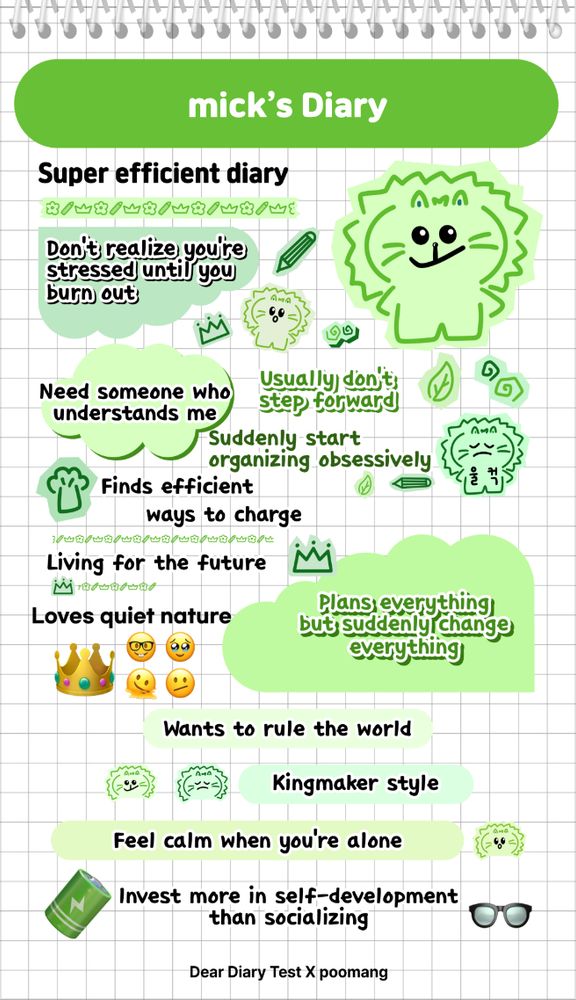 mick’s Diary
Super efficient diary
Don't realize you're
stressed until you
burn out
Need someone who
understands me
Usually don't
step forward
Suddenly start
organizing obsessively
울컥
Finds efficient
ways to charge
Living for the future
Loves quiet nature
Plans everything
but suddenly change
everything
Wants to rule the world
Kingmaker style
Feel calm when you're alone
Invest more in self-development
than socializing
Dear Diary Test X poomang